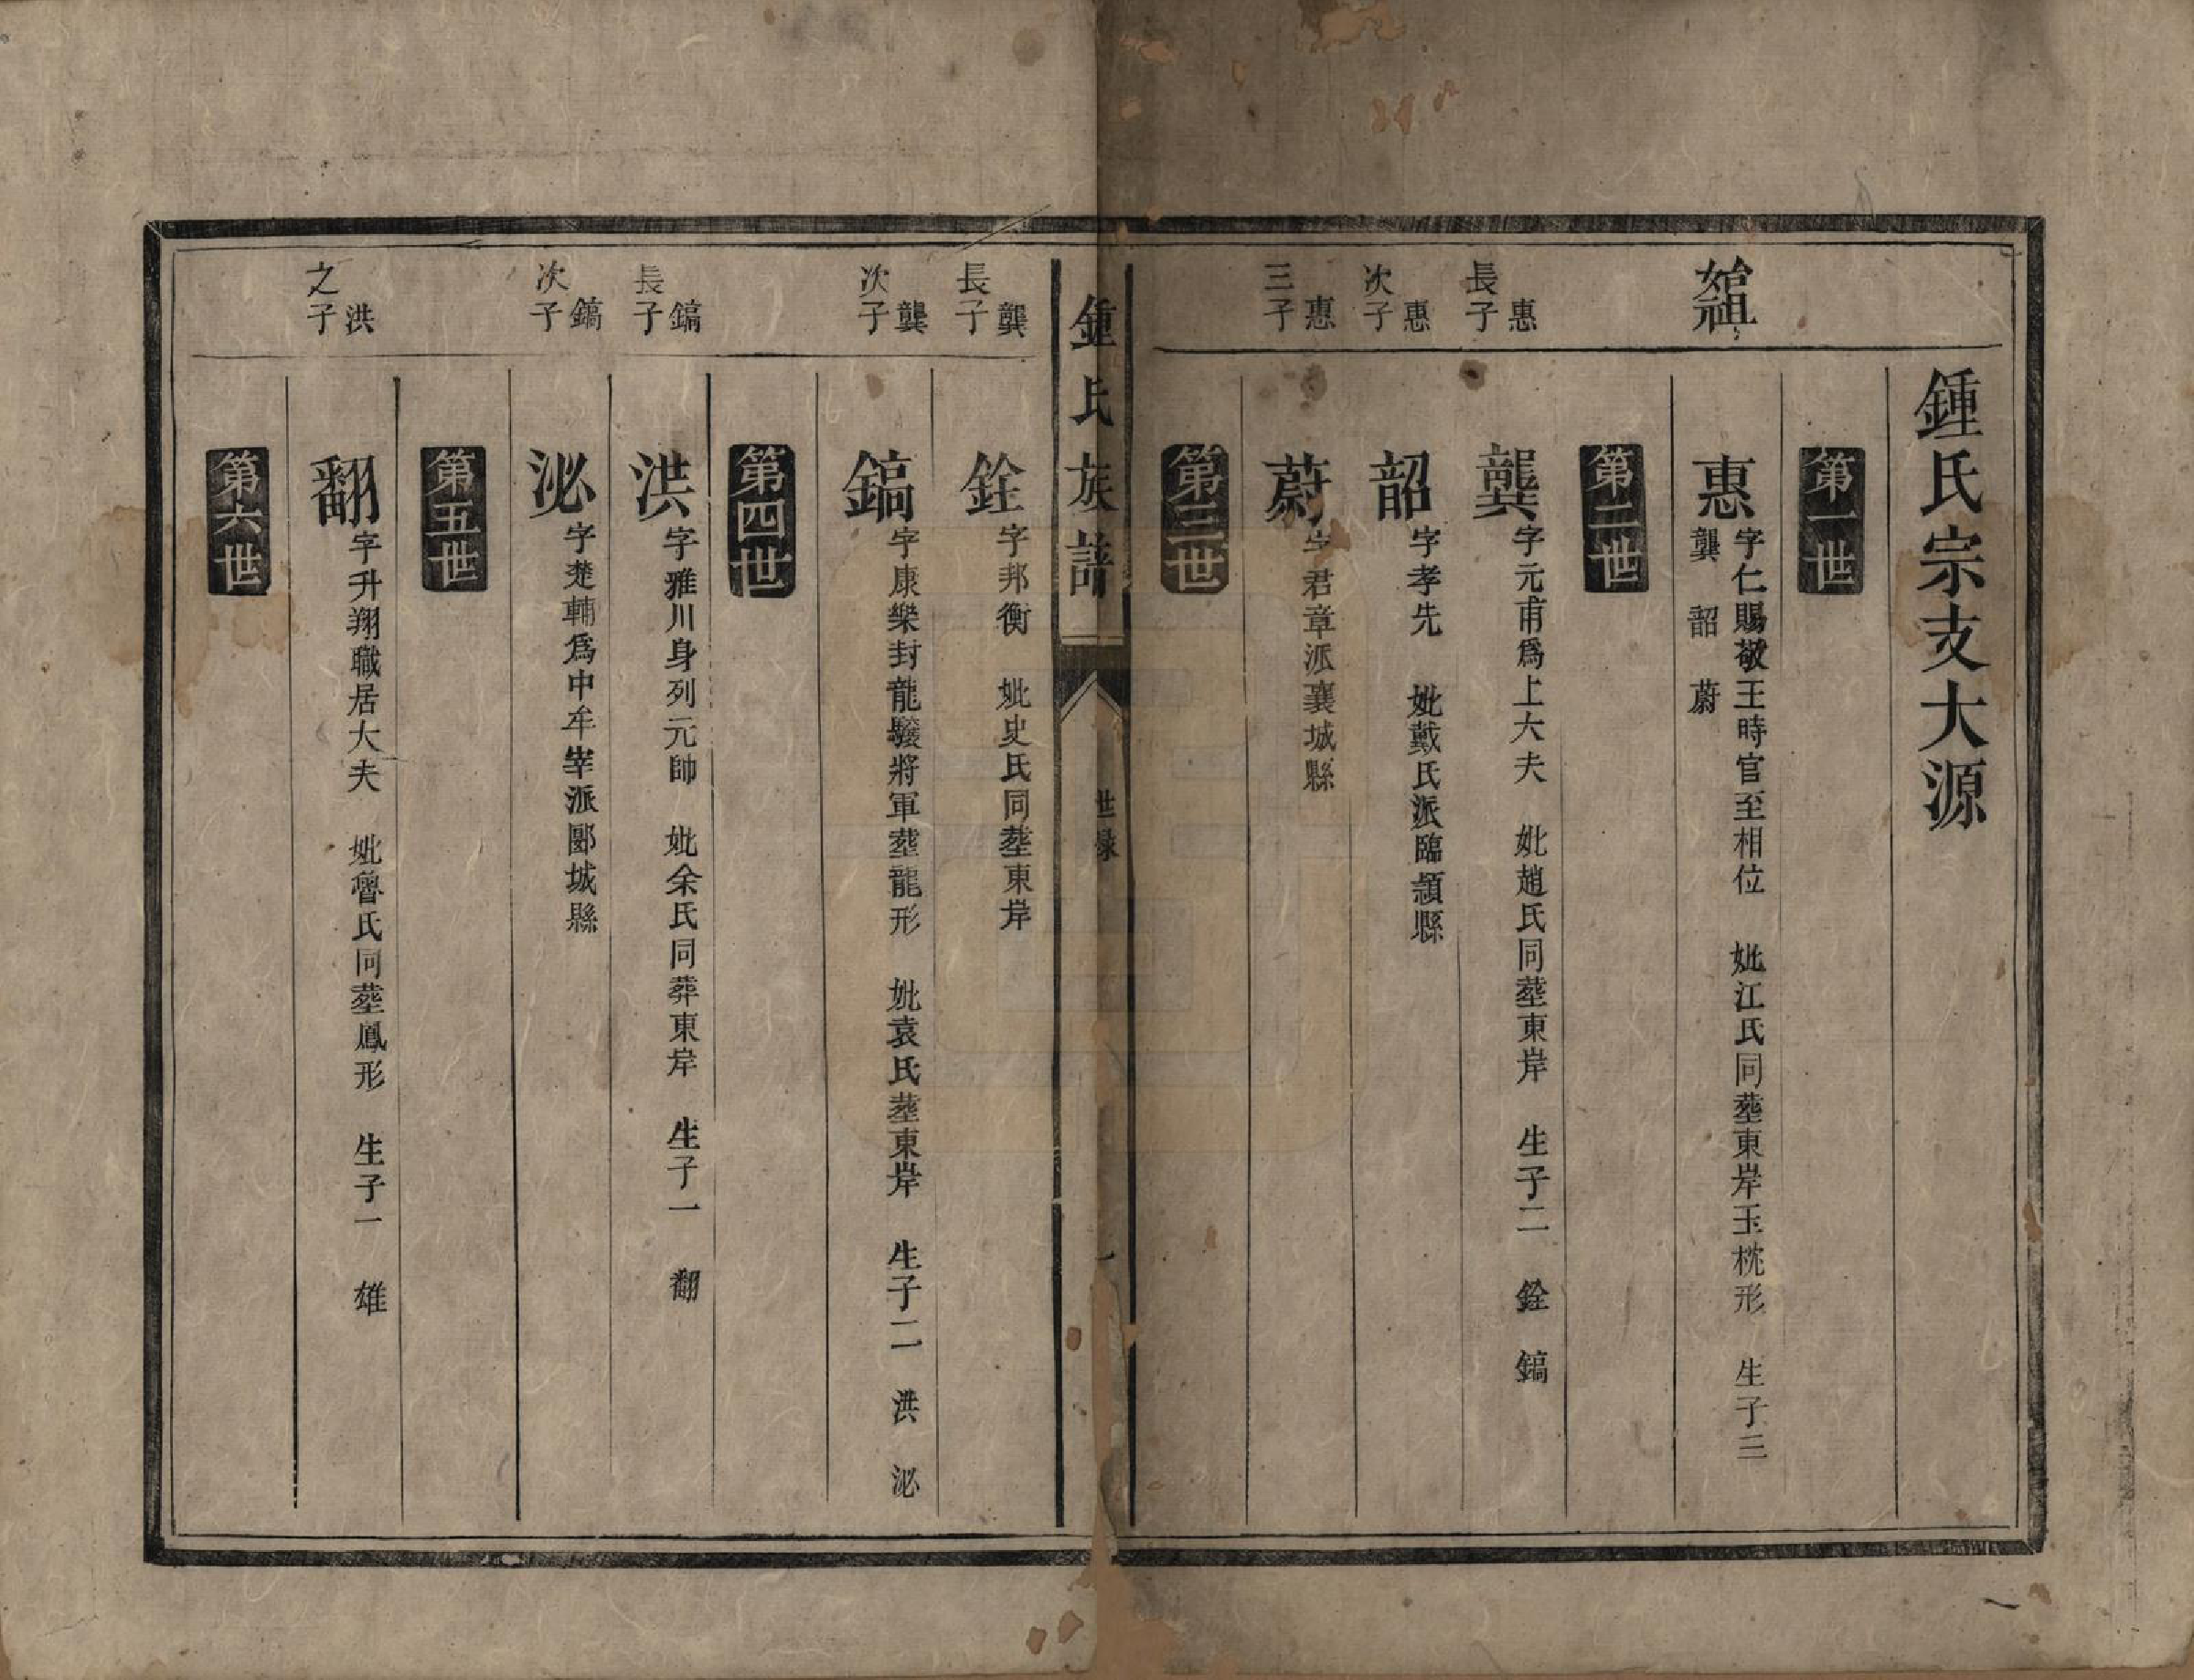 鍾氏宗支大源
第一世
惠
字仁賜敬王時官至相位 妣江氏同塟東岸玉枕形 生子三
龔 韶 蔚
第二世
惠長子
龔
字元甫爲上大夫 妣趙氏同塟東岸 生子二 銓 鎬
惠次子
韶
字孝先 妣戴氏派臨潁縣
惠三子
蔚
字君章派襄城縣
第三世
鍾氏族譜
世錄
龔長子
銓
字邦衡 妣史氏同塟東岸
龔次子
鎬
字康樂封龍驤將軍塟龍形 妣袁氏塟東岸 生子二 洪 泌
第四世
鎬長子
洪
字雅川身列元帥 妣余氏同葬東岸 生子一 翻
鎬次子
泌
字楚輔爲中牟宰派郾城縣
第五世
洪之子
翻
字升翔職居大夫 妣魯氏同塟鳳形 生子一 雄
第六世